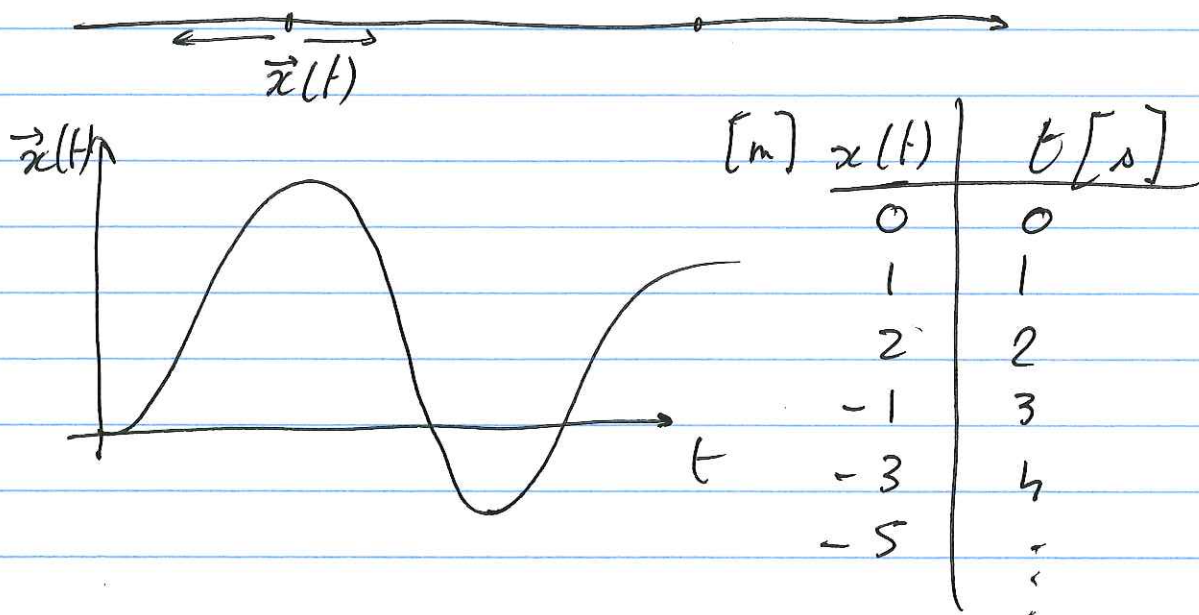 x⃗(t)
x⃗(t)
t
[m] x(t) t [s]
0 0
1 1
2 2
-1 3
-3 4
-5 ⋮